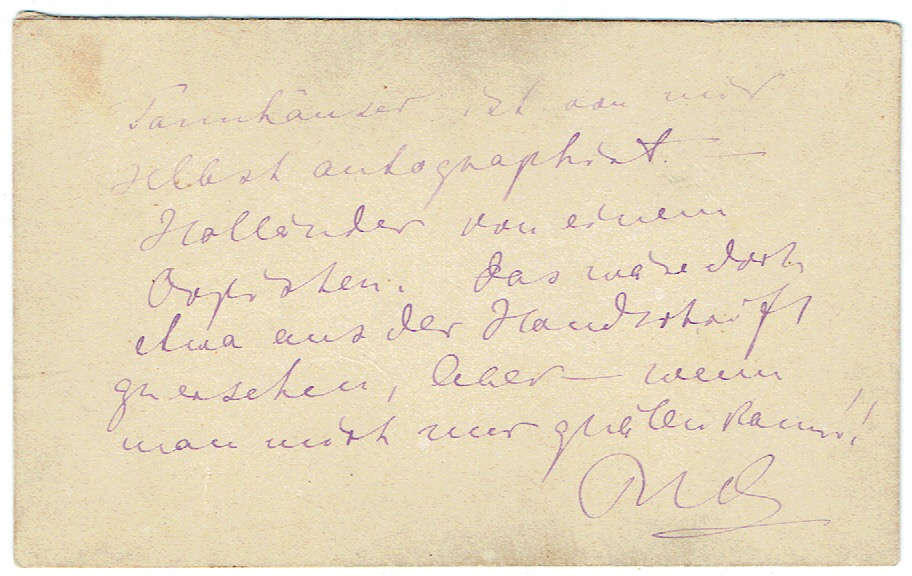 Tannhäuser ist von mir
selbst autographirt. —
Holländer von einem
Copisten. Das wäre doch
etwa aus der Handschrift
zu ersehen, lieber — wenn
man mich nur quälen kann!!
RW